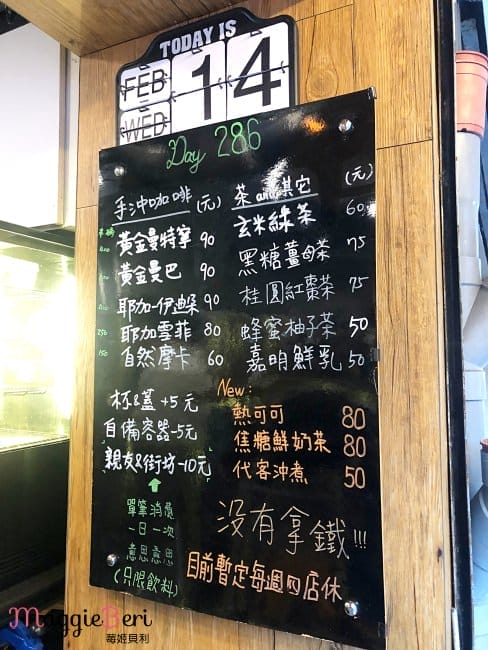 TODAY IS
FEB
14
WED
Day 286
手沖咖啡 (元)
黃金曼特寧 90
黃金曼巴 90
耶加-伊迪朵 90
250 耶加雪菲 80
150 自然摩卡 60
杯&蓋 +5元
自備容器-5元
親友&街坊-10元
單筆消費
一日一次
意思意思
(只限飲料)
茶and其它 (元)
玄米綠茶 60
黑糖薑母茶 75
桂圓紅棗茶 75
蜂蜜柚子茶 50
嘉明鮮乳 50
New:
熱可可 80
焦糖鮮奶茶 80
代客沖煮 50
沒有拿鐵!!!
目前暫定每週四店休
MaggieBeri
莓姬貝利